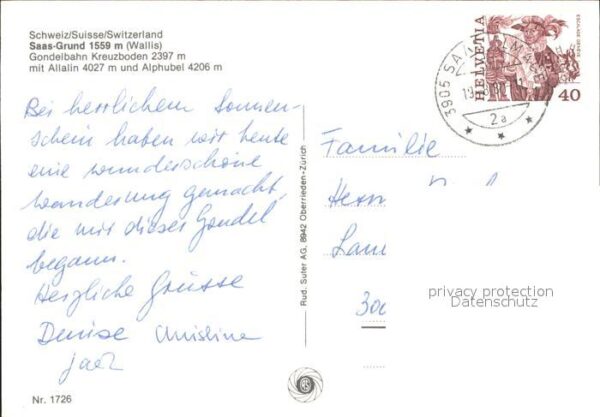 Schweiz/Suisse/Switzerland
Saas-Grund 1559 m (Wallis)
Gondelbahn Kreuzboden 2397 m
mit Allalin 4027 m und Alphubel 4206 m
Bei herrlichem Sonnen-
schein haben wir heute
eine wunderschöne
Wanderung gemacht,
die mit dieser Gondel
begann.
Herzliche Grüsse
Denise Christine
Nr. 1726
Rud. Suter AG, 8942 Oberrieden-Zürich
HELVETIA
ESCALADE GENÈVE
40
3905 SAAS-ALMAGELL
2a
Familie
Herm
Lam
300
privacy protection
Datenschutz